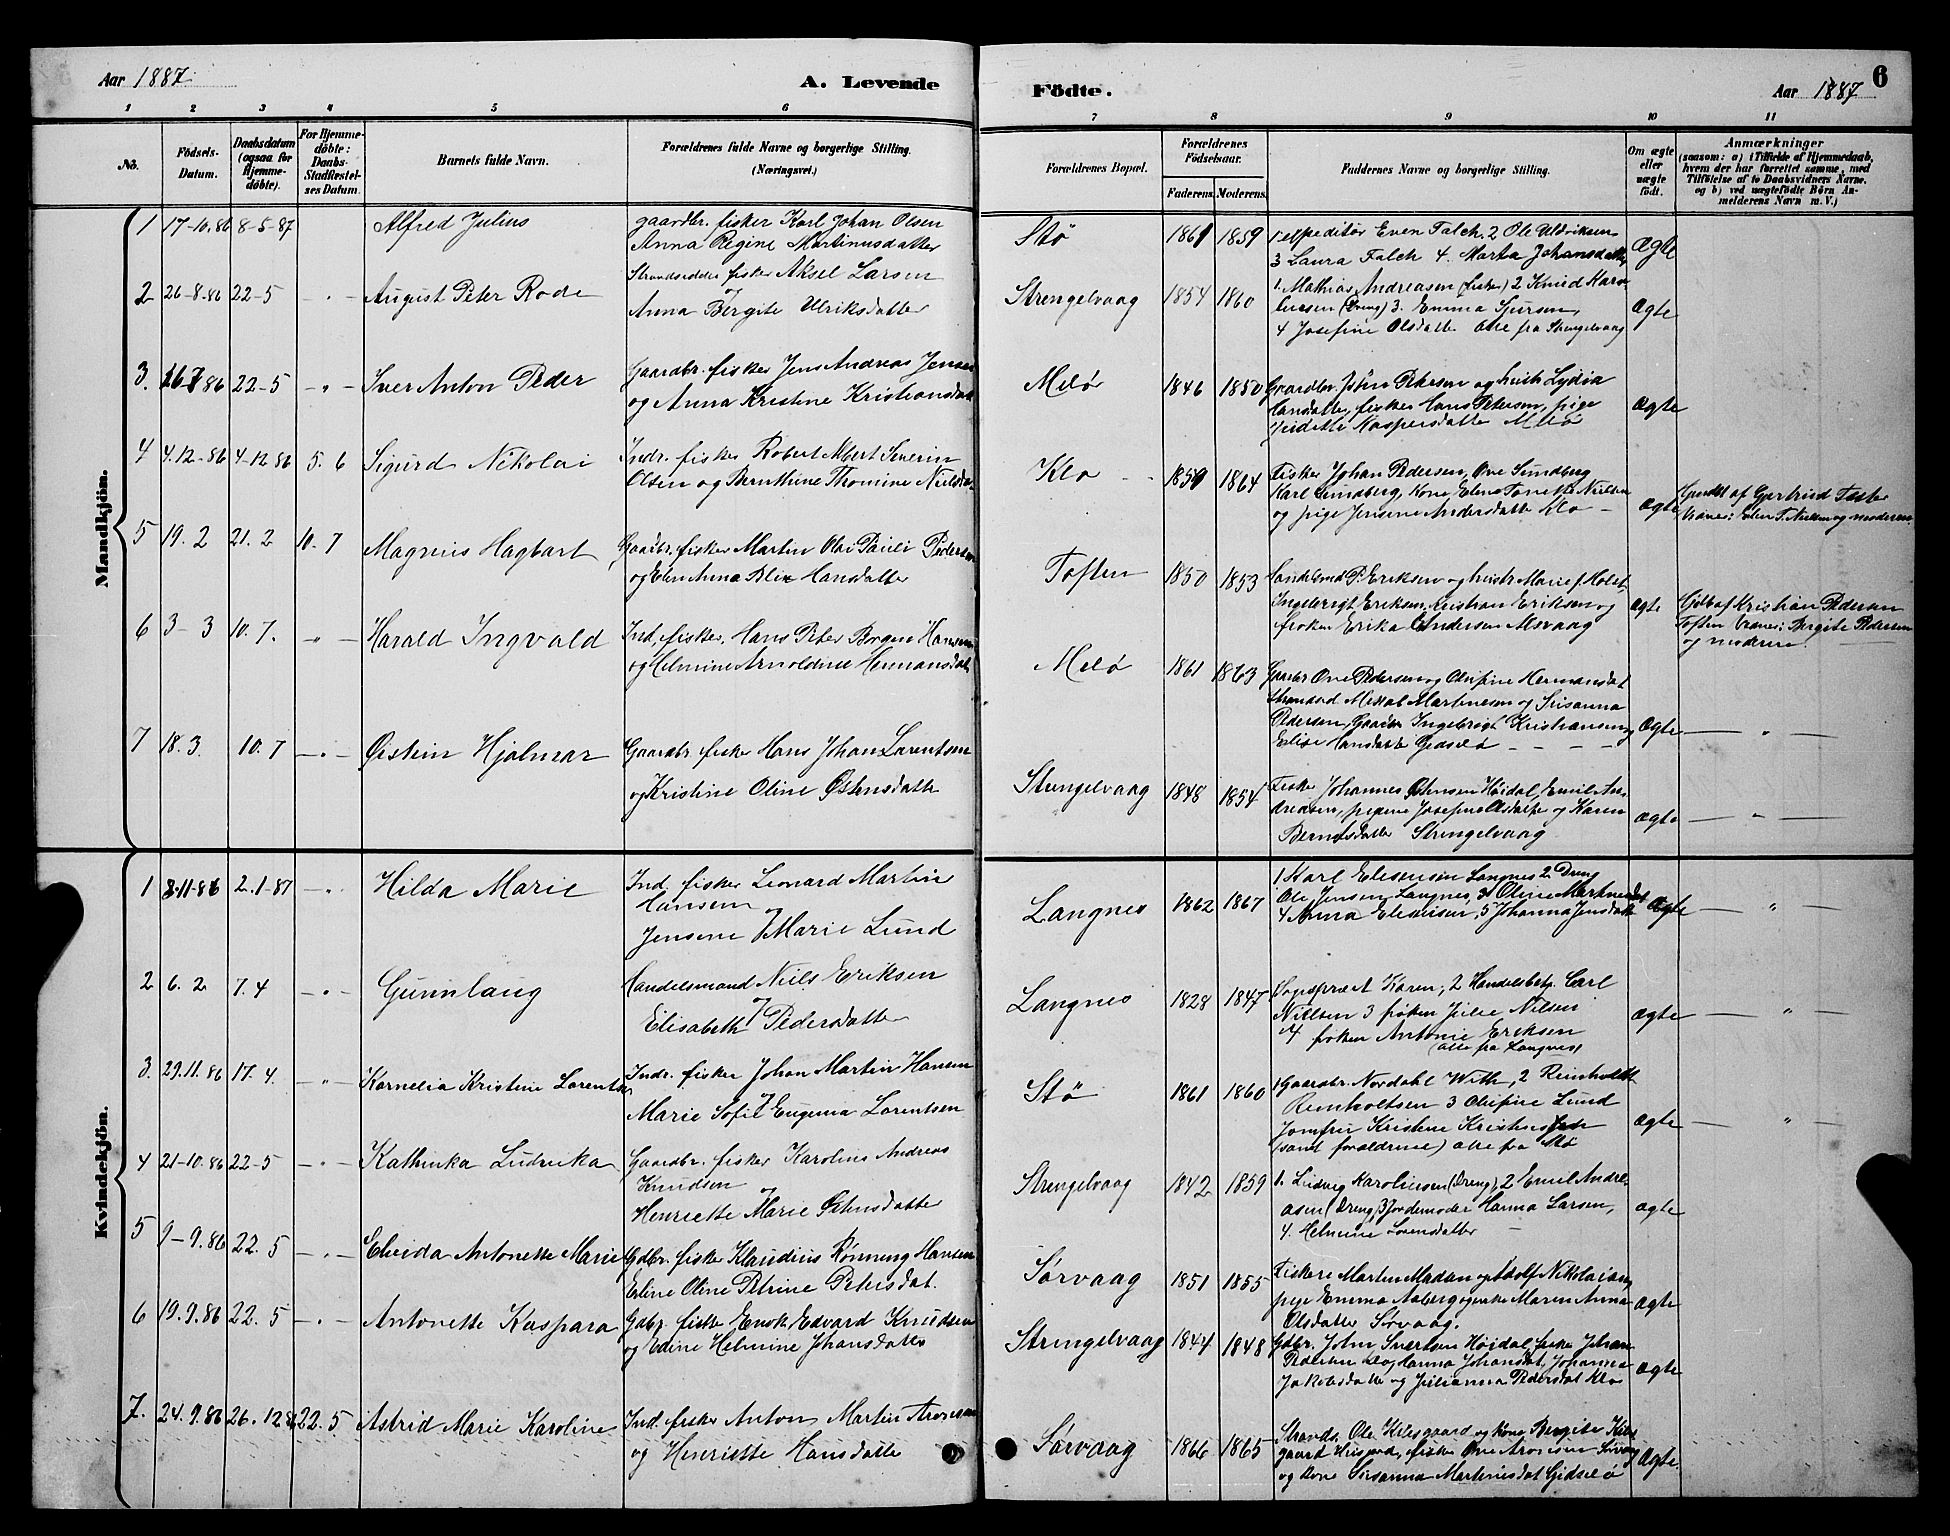 Aar 1887.
A. Levende
Födte.
Aar 1887
6
1 2 3 4 5 6 7 8 9 10 11
No.
Födsels-
Datum.
Daabsdatum
(ogsaa for
Hjemme-
döbte).
For Hjemme-
døbte:
Daabs-
Stadfæstel-
ses Datum.
Barnets fulde Navn.
Forældrenes fulde Navne og borgerlige Stilling.
(Næringsvei.)
Forældrenes Bopæl.
Forældrenes
Födselsaar.
Faderens. Moderens.
Faddernes Navne og borgerlige Stilling.
Om ægte
eller
uægte
födt.
Anmærkninger
(saasom: a) i Tilfælde af Hjemmedaab,
hvem der har forrettet samme, med
Tilföielse af to Daabsvidners Navne.
og b) ved uægtefödte Börn An-
melderens Navn m. V.)
Mandkjön.
1 17-10.86 8-5-87 Alfred Julius
gaardbr. fisker Karl Johan Olsen
Anna Regine Martinusdatter
Stø 1861 1859
1 expeditör Even Falch. 2 Ole Uldriksen
3 Laura Falch 4. Marta Johansdatter
Ægte
2 26-8.86 22-5 - " - August Peter Rode
Strandsidder fisker Aksel Larsen
og
Anna Bergite Ulriksdatter
Strengelvaag 1854 1860
1 Mathias Andreasen (fisker) 2 Knud Karo-
liussen (Dreng) 3. Emma Sjursen,
4 Josefine Olsdatter alle fra Strengelvaag
Ægte
3. 16-7 86 22-5 - " - Iver Anton Peder
Gaardbr. fisker Jens Andreas Jensen
og Anna Kristine Kristiansdatt
Melø 1846 1850
Gaardbr John Petersen og hustr Lydia
Hansdatter, fisker Hans Petersen, pige
Kaspersdatter Melø
Ægte
4 4.12-86 4-12 86 5. 6 Sigurd Nikolai
Indr. fisker Robert Albert Severin
Olsen og Bernthine Thomine Nielsda.
Klo 1859 1864
Fisker Johan Pedersen, Ove Sundberg
Karl Sundberg, Kone, Elen Tonette Nielsen
og pige Jensine Andersdatter Klo -
Ægte
af Gertrud
og moderen.
5 19. 2 21. 2 10. 7 Magnus Hagbart
Gaardbr. fisker Martin Olai Pauli Pedersen
og Elen Anna Blix Hansdatter
Toften 1850 1853
Handelsmd P. Eriksen og hustr Marie f. Holst
Ingebrigt Eriksen, Kristian Eriksen og
frøken Erika Andersen Alsvaag
Ægte
Hjdb af Kristian Pedersen
Toften Vidner: Bergite Pedersen
og moderen.
6 3-3 10. 7. " - Harald Ingvald
Ind. fisker, Hans Peter Borgen Hansen
og Helmine Arnoldine Hermansdatt
Melø 1861 1863
Gaardbr Ove Pedersen og Olufine Hermansdat
Strandsd Mikkal Martinesen og Susanna
Pedersen, Gaardbr Ingebrigt Kristiansen og
Elise Hansdatter Gidsel ø - - - -
Ægte - " -
7 18. 3. 10. 7 - " - Øistein Hjalmar
Gaardbr. fisker Hans Johan Lorentsen
og Kristine Oline Østensdatter
Strengelvaag 1848 1854
Fisker Johannes Østensen Høidal, Emil An-
dreasen, pigerne Josefine Olsdatter og Karen
Berntsdatter Strengelvaag
Ægte - " -
Kvindekjön.
1 3.11-86 2.1-87 - " - Hilda Marie
Ind. fisker Leonard Martin
Hansen
og
Jensine Marie Lund
Langnes 1862 1867
1 Karl Elisenson Langnes 2 Dreng
Ole Jensen Langnes, 3 Oline Martinesdat
4 Anna Elisensen, 5 Johanna Jensdatt
Ægte - " -
2 6. 2 7. 4 - " - Gunnlaug
Handelsmand Niels Eriksen
og
Elisabeth Pedersdatter
Langnes 1828 1847
Sognepræst Karen, 2 Handelsbetj. Carl
Nielsen 3 frøken Julie Nilsen
4 frøken Antonie Eriksen
(alle fra Langnes)
Ægte - " -
3. 29.11.86 17.4. - " - Kornelia Kristine Lorentse
Indr. fisker Johan Martin Hansen
og
Marie Sofie Eugenia Lorentsen
Stö 1861 1860
1 Gaardbr. Nordahl With, 2 Reinholdt
Reinholtsen 3 Olufine Lund
Jomfru Kristine
(samt forældrene) alle fra Stø
Ægte - " -
4 21-10.86 22-5 - " - Kathinka Ludvika
Gaardbr. fisker Karolius Andreas
Knudsen
og
Henriette Marie Østensdatter
Strengelvaag 1842 1859
1. Ludvig Karoliussen (Dreng), 2 Emil Andre-
asen (Dreng) 3 Jordemoder Hanna Larsen,
4. Helmine Lorensdatter -
Ægte
5 9-9.86 22.5 - " - Elvida Antonette Marie
Gdbr. fisker Klaudius Rønning Hansen
Eline Oline Petrine Petersdat.
Sørvaag 1851 1855
Fiskere Martin Madsen og Adolf Nikolaisen,
pige Emma Aaberg og enke Maren Anna
Olsdatter Sørvaag.
Ægte
6 19.9.86 22.5 - " - Antonette Kaspara
Gdbr. fisker Enok Edvard Knudsen
og Edine Helmine Johansdatter
Strengelvaag 1844 1848
Gdbr. John Sivertsen Høidal, fisker Johan
Pedersen Klo, Hanna Johansdat, Johanna
Jakobsdatter og Julianna Pedersdat Klo
Ægte
7. 24.9.86 26.12 86 22.5 Astrid Marie Karoline
Ind. fisker Anton Martin Aronsen
og Henriette Hansdatter
Sørvaag 1866 1865
Strands. Ole Kilsgaard og kone Bergite Kils-
gaard fisker Ove Aronsen Sørvaag
og kone Susanna Martinusdat Gidsel ø
Ægte.